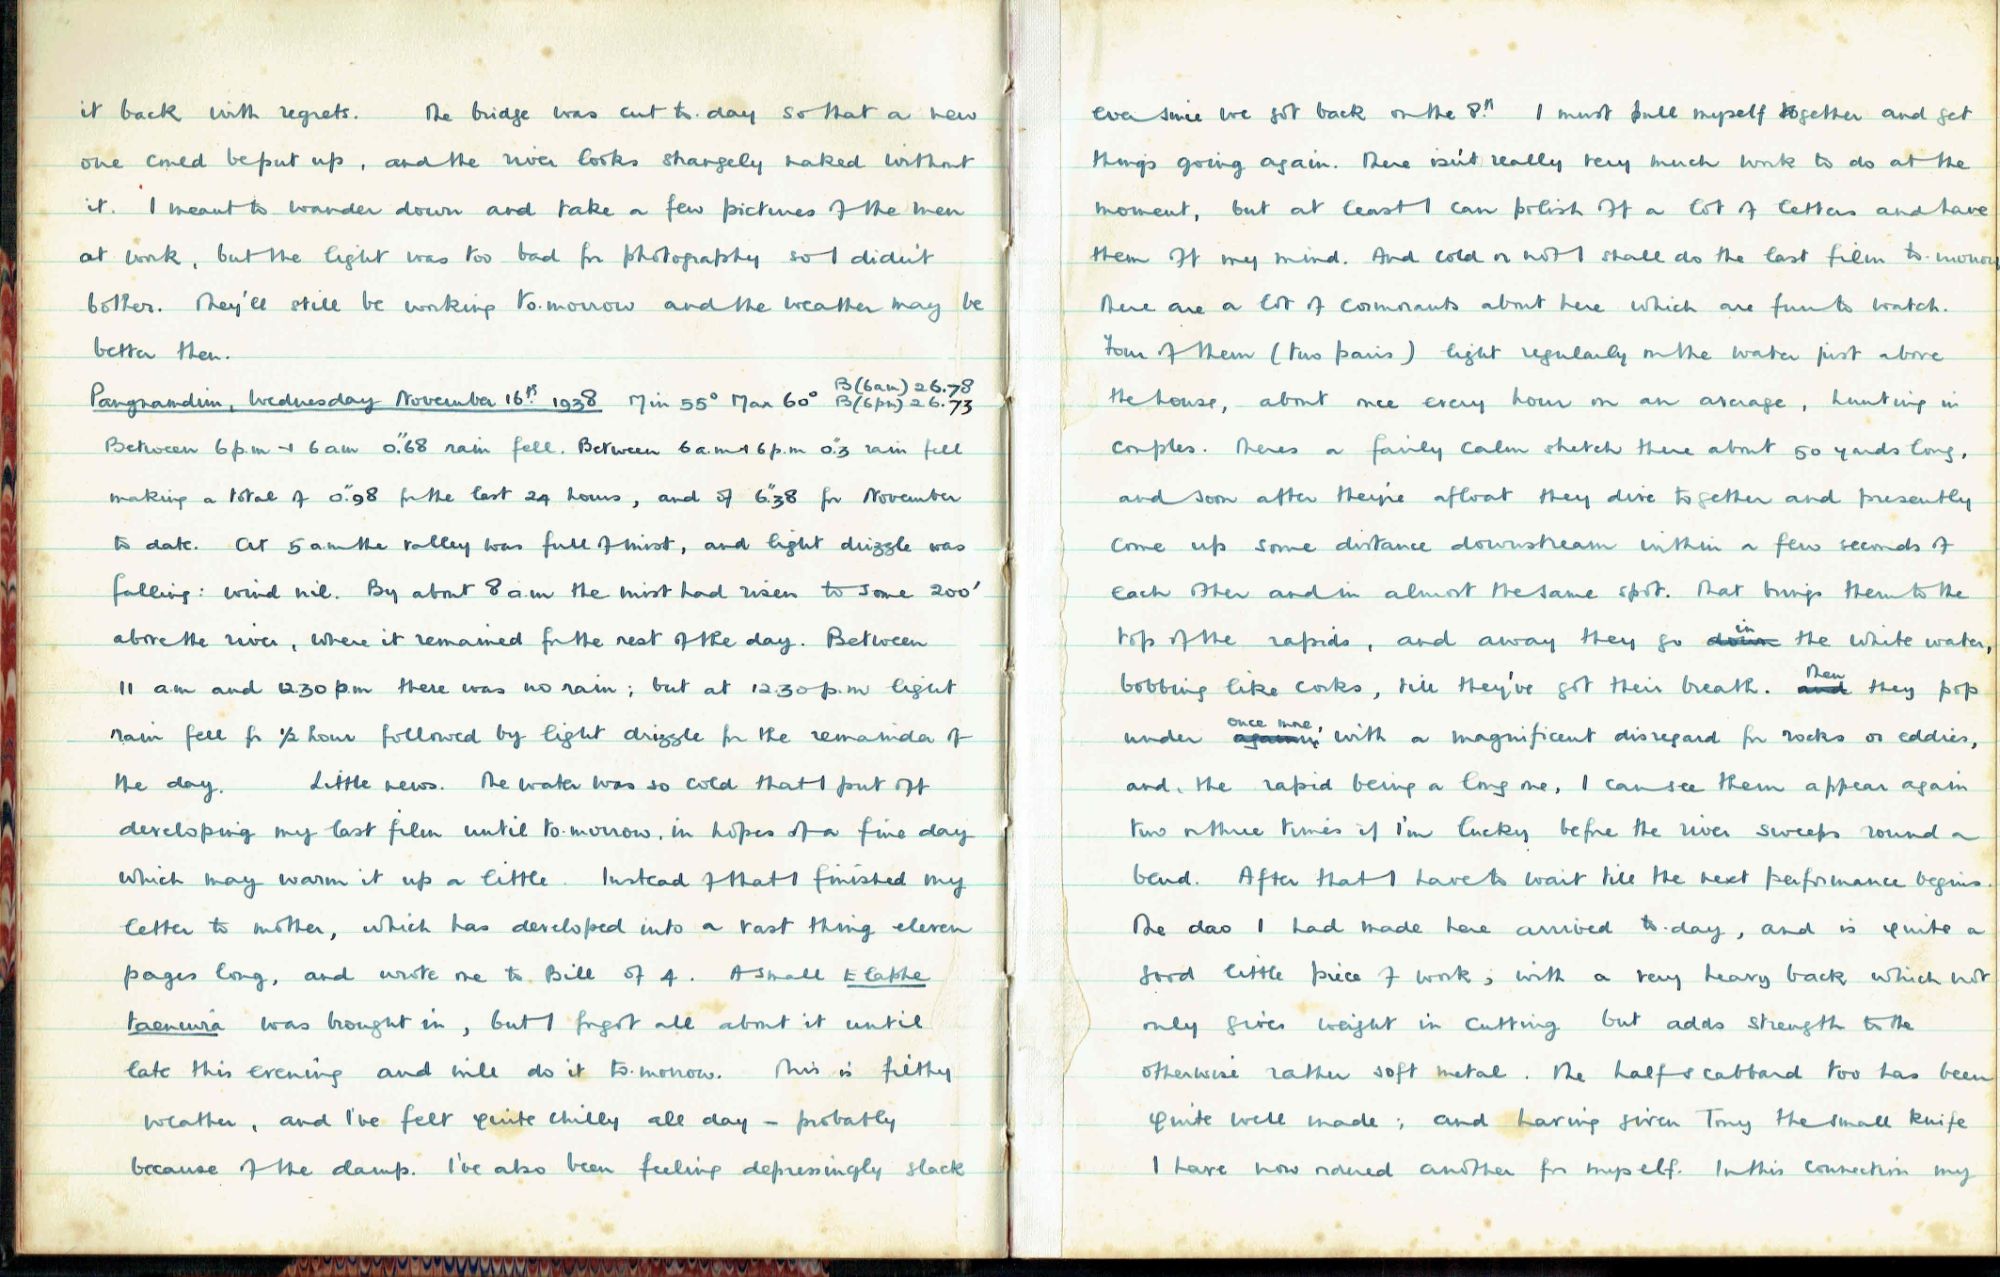 it back with regrets. The bridge was cut to-day so that a new
one could be put up, and the river looks strangely naked without
it. I meant to wander down and take a few pictures of the men
at work, but the light was too bad for photography so I didn't
bother. They'll still be working to-morrow and the weather may be
better then.
Pangnamdim, Wednesday November 16th. 1938 Min 55° Max 60° B(6am) 26.78
B(6pm) 26.73
Between 6 p.m + 6 am 0."68 rain fell. Between 6 a.m + 6 p.m 0."3 rain fell
making a total of 0."98 for the last 24 hours, and of 6."38 for November
to date. At 5 am the valley was full of mist, and light drizzle was
falling: wind nil. By about 8 am the mist had risen to some 200'
above the river, where it remained for the rest of the day. Between
11 am and 12.30 p.m there was no rain; but at 12.30 p.m light
rain fell for ½ hour followed by light drizzle for the remainder of
the day. Little news. The water was so cold that I put off
developing my last film until to-morrow, in hopes of a fine day
which may warm it up a little. Instead of that I finished my
letter to mother, which has developed into a vast thing eleven
pages long, and wrote one to Bill of 4. A small Elaphe
taeneura was brought in, but I forgot all about it until
late this evening and will do it to-morrow. This is filthy
weather, and I've felt quite chilly all day – probably
because of the damp. I've also been feeling depressingly slack
ever since we got back on the 8th. I must pull myself together and get
things going again. There isn't really very much work to do at the
moment, but at least I can polish off a lot of letters and have
them off my mind. And cold or not I shall do the last film to-morrow
There are a lot of cormorants about here which are fun to watch.
Four of them (two pairs) light regularly on the water just above
the house, about once every hour on an average, hunting in
couples. There's a fairly calm stretch there about 50 yards long,
and soon after they're afloat they dive together and presently
come up some distance downstream within a few seconds of
each other and in almost the same spot. That brings them to the
top of the rapids, and away they go down in the white water,
bobbing like corks, till they've got their breath. and Then they pop
under again, once more, with a magnificent disregard for rocks or eddies,
and, the rapid being a long one, I can see them appear again
two or three times if I'm lucky before the river sweeps round a
bend. After that I have to wait till the next performance begins.
The dao I had made here arrived to-day, and is quite a
good little piece of work; with a very heavy back which not
only gives weight in cutting but adds strength to the
otherwise rather soft metal. The half-scabbard too has been
quite well made; and having given Tony the small knife
I have now ordered another for myself. In this connection my